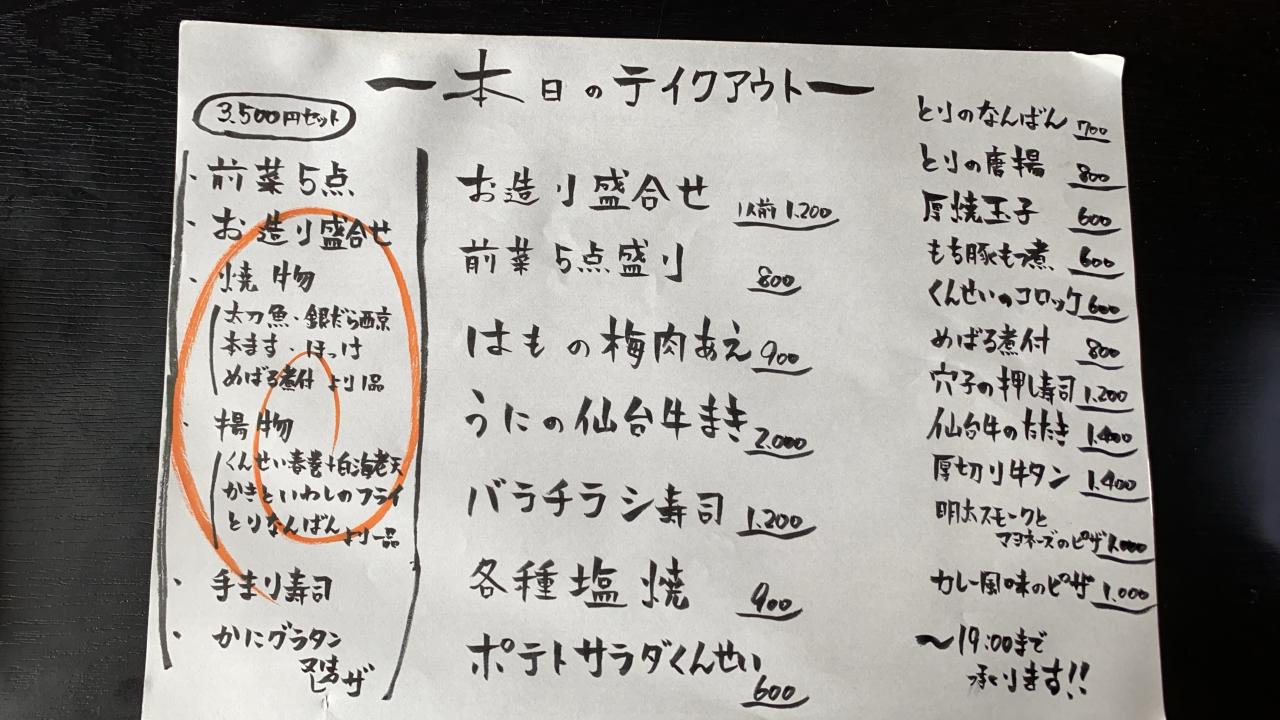 一本日のテイクアウト一
3.500円セット
・前菜5点
・お造り盛合せ
・焼物
太刀魚・銀だら西京
本ます・ほっけ
めばる煮付 より1品
・揚物
くんせい春巻+白海老天
かきといわしのフライ
とりなんばん より一品
・手まり寿司
・かにグラタン
又はピザ
お造り盛合せ 1人前 1.200
前菜5点盛り 800
はもの梅肉あえ 900
うにの仙台牛まき 2.000
バラチラシ寿司 1.200
各種塩焼 900
ポテトサラダくんせい 600
とりのなんばん 700
とりの唐揚 800
厚焼玉子 600
もち豚もつ煮 600
くんせいのコロッケ 600
めばる煮付 800
穴子の押し寿司 1.200
仙台牛のたたき 1.400
厚切り牛タン 1.400
明太スモークと
マヨネーズのピザ 1.000
カレー風味のピザ 1.000
〜19:00まで
承ります!!